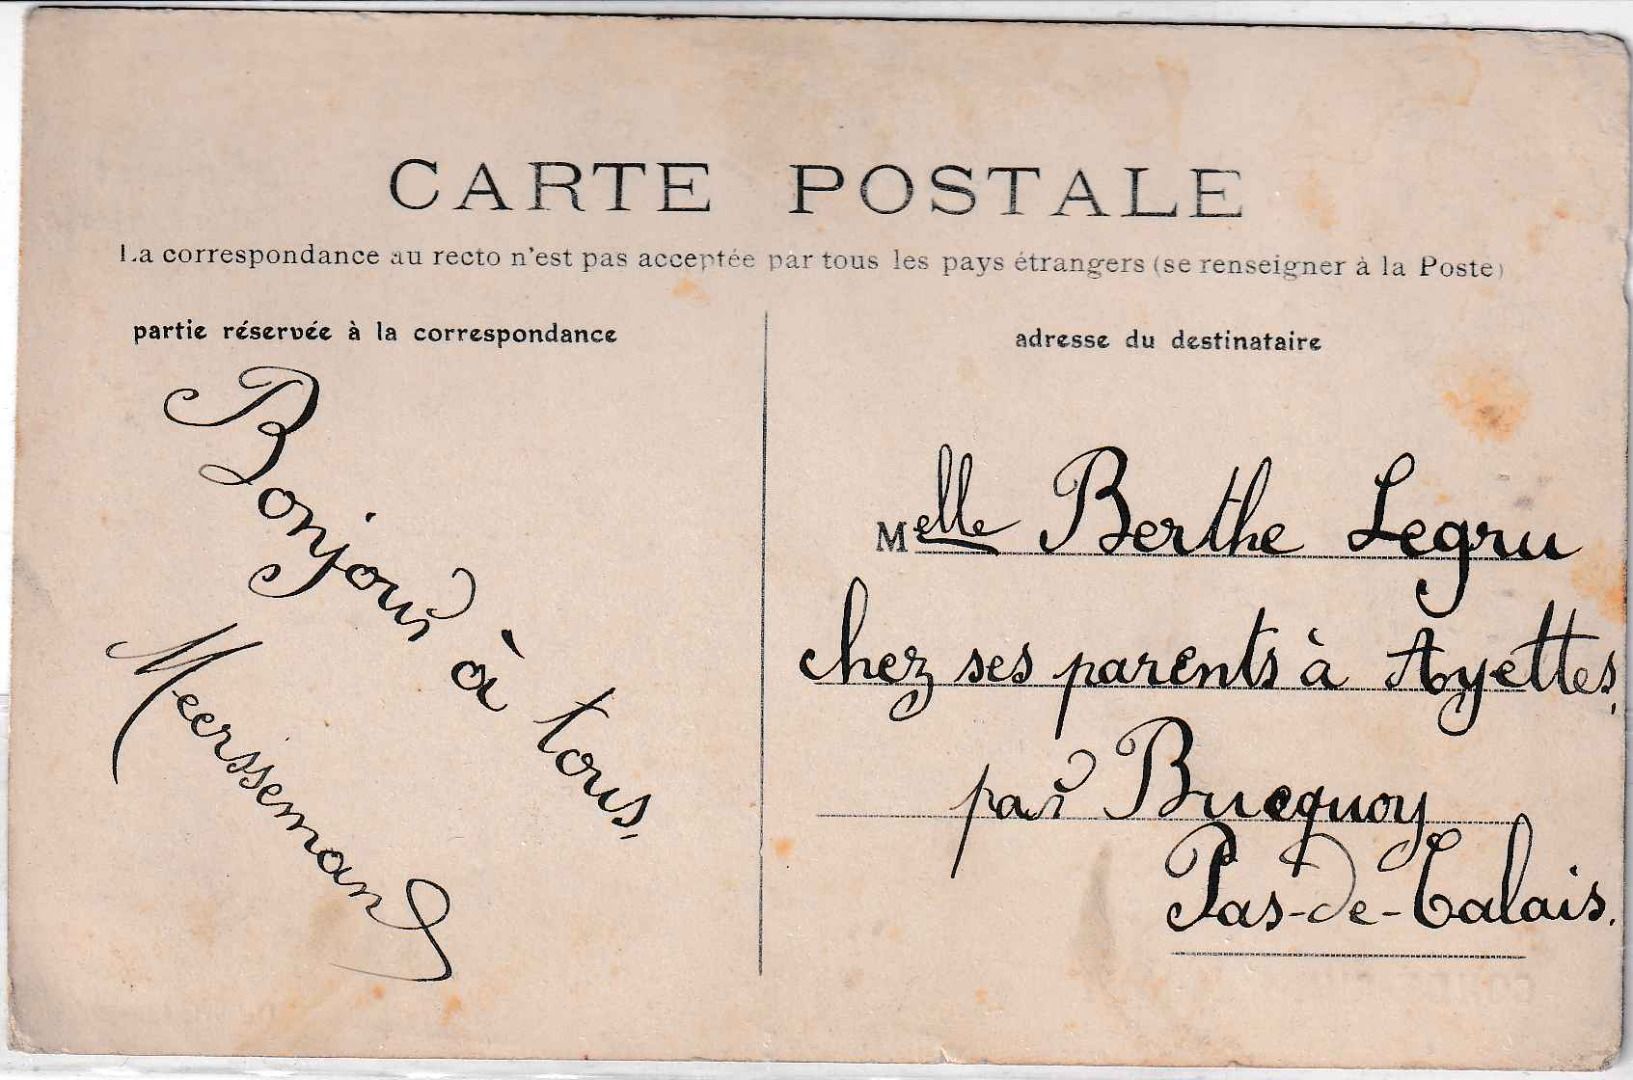 CARTE POSTALE
La correspondance au recto n'est pas acceptée par tous les pays étrangers (se renseigner à la Poste)
partie réservée à la correspondance
Bonjour à tous,
Meersseman
adresse du destinataire
Melle Berthe Legru
chez ses parents à Ayettes,
par Bucquoy
Pas-de-Calais.